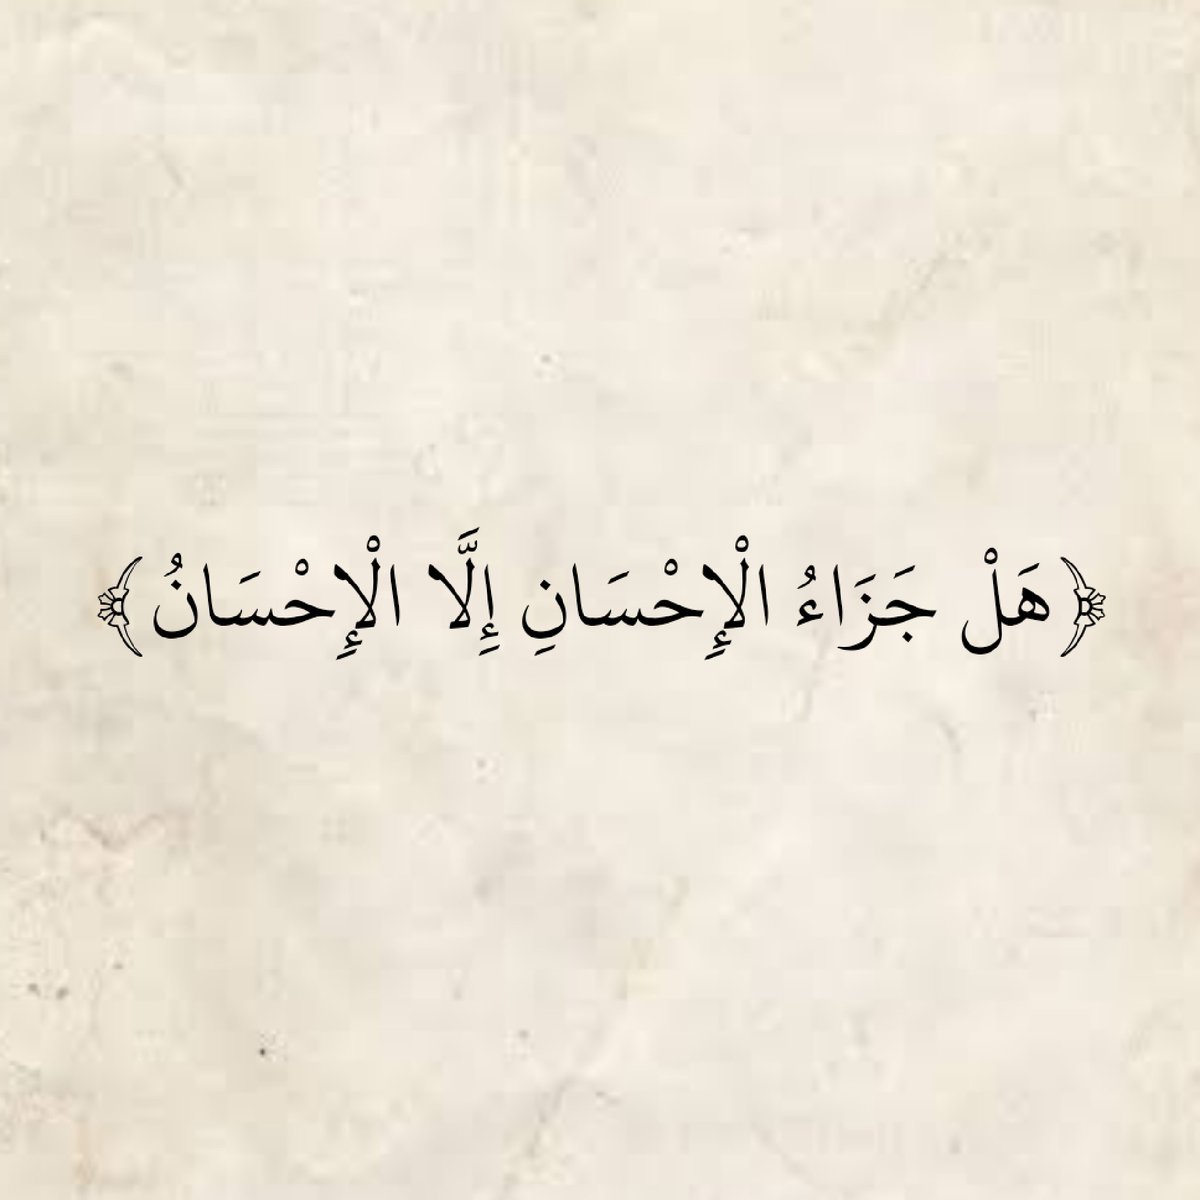 ﴿هَلْ جَزَاءُ الْإِحْسَانِ إِلَّا الْإِحْسَانُ﴾